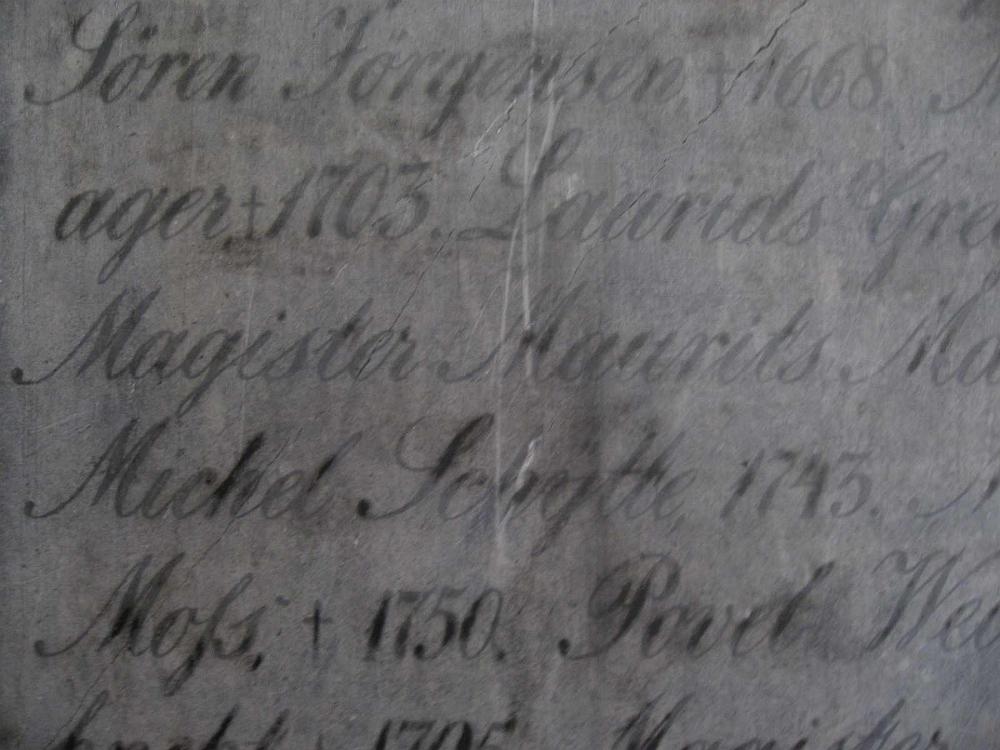 Sören Jörgensen, † 1668.
ager † 1703. Laurids Gre
Magister Maurits Ma
Michel Schytte, 1743.
Moſs, † 1750. Povel We